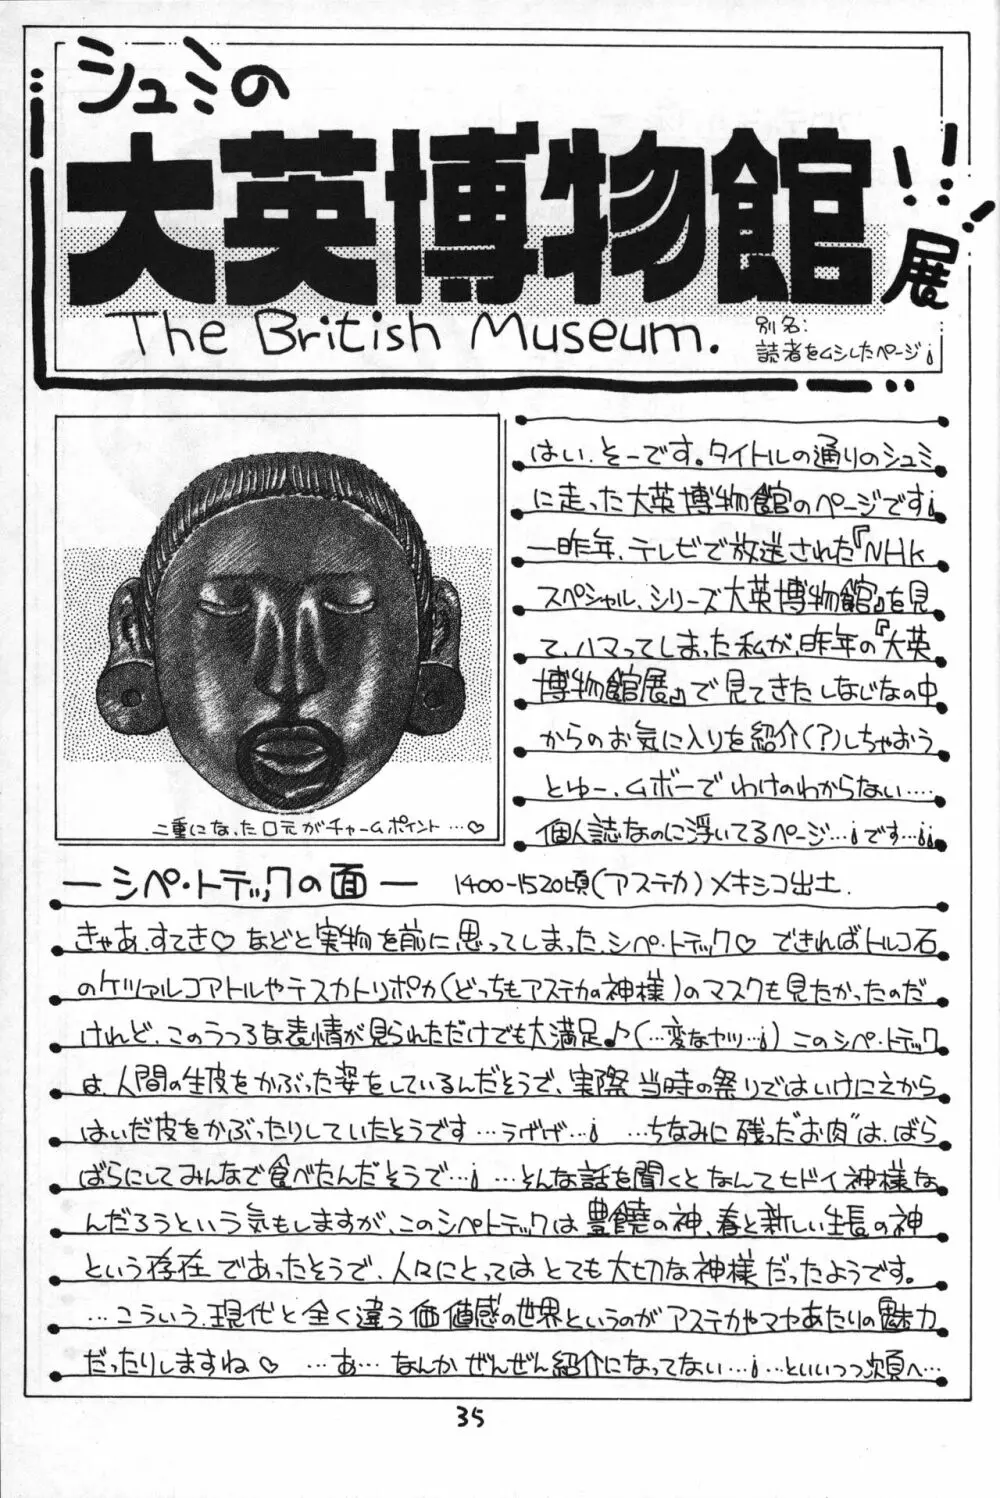 シュミの
大英博物館展
The British Museum.
別名:
読者をムシしたページ¡
はい、そーです。タイトルの通りのシュミ
に走った大英博物館のページです¡
一昨年、テレビで放送された『NHK
スペシャル、シリーズ大英博物館』を見
て、ハマってしまった私が、昨年の『大英
博物館展』で見てきたしなじなの中
からのお気に入りを紹介(?)しちゃおう
とゆー、ムボーでわけのわからない‥‥
個人誌なのに浮いてるページ…¡です…¡¡
二重になった口元がチャームポイント…♡
―シペ・トテックの面― 1400-1520頃(アステカ)メキシコ出土.
きゃあ、すてき♡などと実物を前に思ってしまった、シペ・トテック♡できればトルコ石
のケツァルコアトルやテスカトリポカ(どっちもアステカの神様)のマスクも見たかったのだ
けれど、このうつろな表情が見られただけでも大満足♪(…変なヤツ…¡)このシペ・トテック
は、人間の生皮をかぶった姿をしているんだそうで、実際当時の祭りではいけにえから
はいだ皮をかぶったりしていたそうです…うげげ…¡ …ちなみに残った“お肉”は、ばら
ばらにしてみんなで食べたんだそうで…¡…そんな話を聞くとなんてヒドイ神様な
んだろうという気もしますが、このシペトテックは豊饒の神、春と新しい生長の神
という存在であったそうで、人々にとってはとても大切な神様だったようです。
…こういう、現代と全く違う価値感の世界というのがアステカやマヤあたりの魅力
だったりしますね♡ …あ…なんかぜんぜん紹介になってない…¡…といいつつ次頁へ…
35